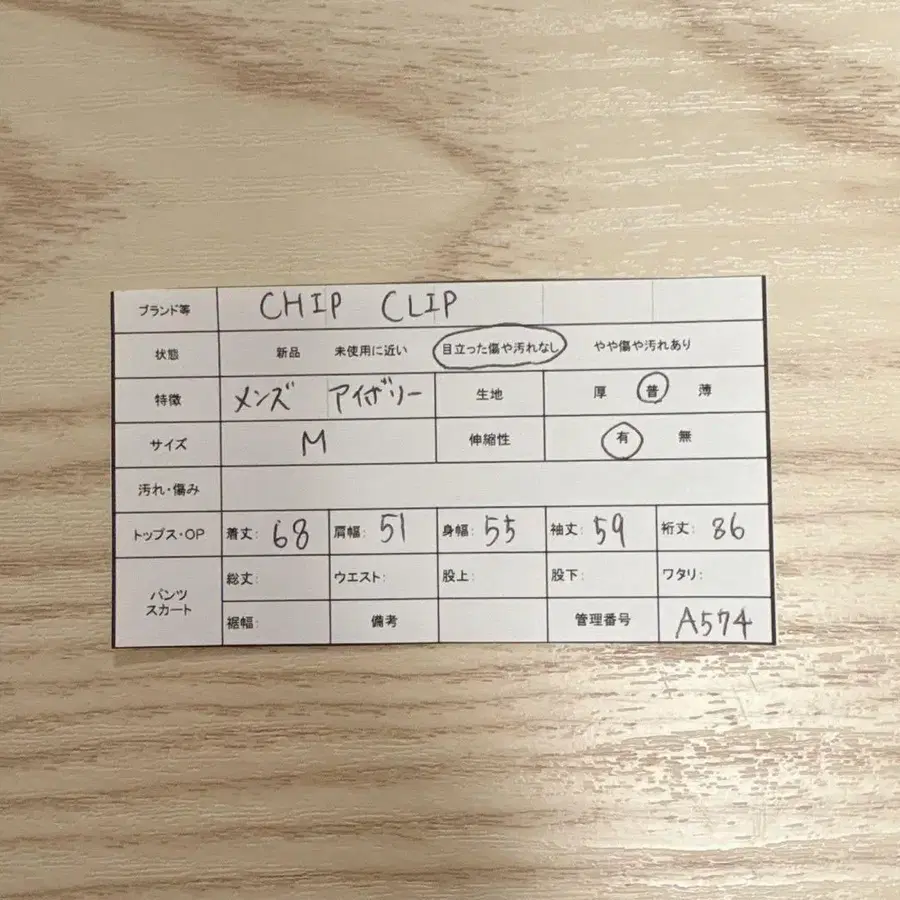 ブランド等 CHIP CLIP
状態 新品 未使用に近い 目立った傷や汚れなし やや傷や汚れあり
特徴 メンズ アイボリー 生地 厚 普 薄
サイズ M 伸縮性 有 無
汚れ・傷み
トップス・OP 着丈: 68 肩幅: 51 身幅: 55 袖丈: 59 裄丈: 86
パンツ
スカート
総丈: ウエスト: 股上: 股下: ワタリ:
裾幅: 備考 管理番号 A574